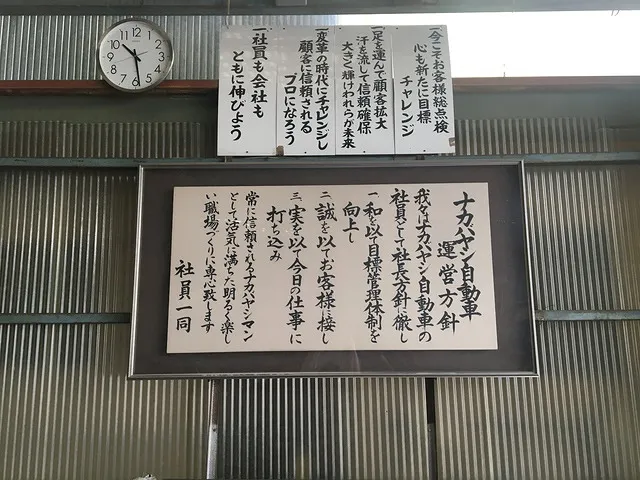 一今こそお客様総点検
心も新たに目標
チャレンジ
一足を運んで顧客拡大
汗を流して信頼確保
大きく輝けわれらが未来
一変革の時代にチャレンジし
顧客に信頼される
プロになろう
一社員も会社も
ともに伸びよう
ナカバヤシ自動車
運営方針
我々はナカバヤシ自動車の
社員として社長方針に徹し
一和を以て目標管理体制を
向上し
二誠を以てお客様に接し
三実を以て今日の仕事に
打ち込み
常に信頼されるナカバヤシマン
として活気に満ちた明るく楽し
い職場づくりに専心致します
社員一同
12
1
2
3
4
5
6
7
8
9
10
11